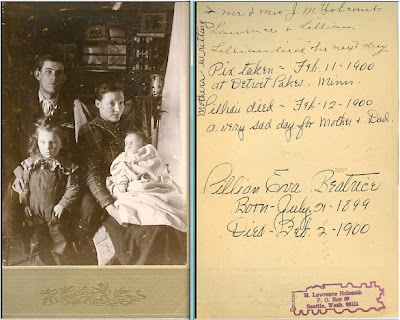 Mothers writing
Mr & Mrs J. M. Holcomb
Lawrence & Lillian.
Lillian died the next day
Pix taken - Feb. 11-1900
at Detroit Lakes. Minn.
Lillian died - Feb-12-1900
a very sad day for Mother & Dad.
Lillian Eva Beatrice
Born - July, 21-1899
Died - Feb. 2-1900
M. Lawrence Holcomb
P. O. Box 69
Seattle, Wash. 98111